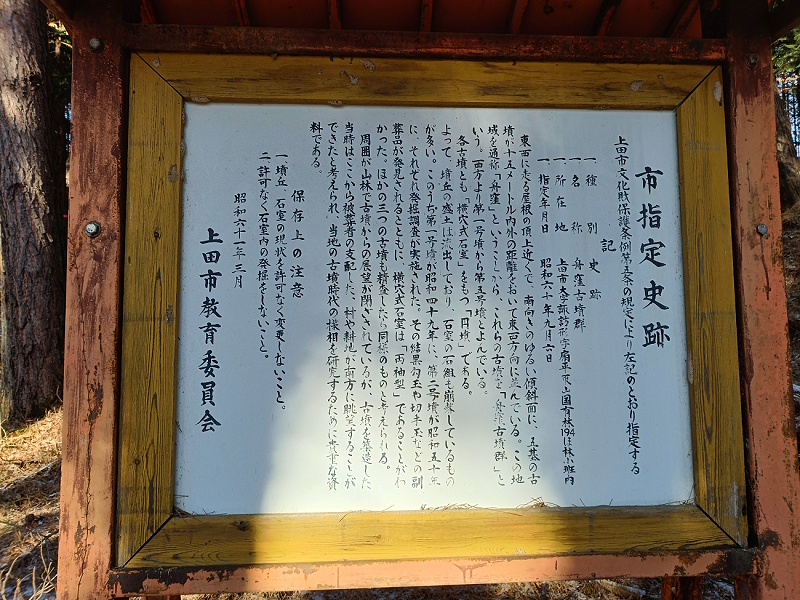 市指定史跡
上田市文化財保護条例第五条の規定により左記のとおり指定する
記
一 種別 史跡
一 名称 舟窪古墳群
一 所在地 上田市大字諏訪形字扇平 山国有林194ほ林小班内
一 指定年月日 昭和六十年九月六日
東西に走る尾根の頂上近くで、南向きのゆるい傾斜面に、五基の古
墳が十五メートル内外の距離をおいて東西方向に並んでいる。この地
域を通称「舟窪」ということから、これらの古墳を「舟窪古墳群」と
いう。西方より第一号墳から第五号墳とよんでいる。
各古墳とも「横穴式石室」をもつ「円墳」である。
よって、墳丘の盛土は流出しており、石室の石組も崩落しているもの
が多い。このうち第一号墳が昭和四十九年に、第二号墳が昭和五十年
に、それぞれ発掘調査が実施された。その結果勾玉や切子玉などの副
葬品が発見されるとともに、横穴式石室は「両袖型」であることがわ
かった。ほかの三つの古墳も類似した同様のものと考えられる。
周囲が山林で古墳からの展望が閉ざされているが、古墳を築造した
当時はここから被葬者の支配した、村や耕地が南方に眺望することが
できたと考えられ、当地の古墳時代の様相を研究するために貴重な資
料である。
保存上の注意
一、墳丘、石室の現状を許可なく変更しないこと。
二、許可なく石室内の発掘をしないこと。
昭和六十一年三月
上田市教育委員会